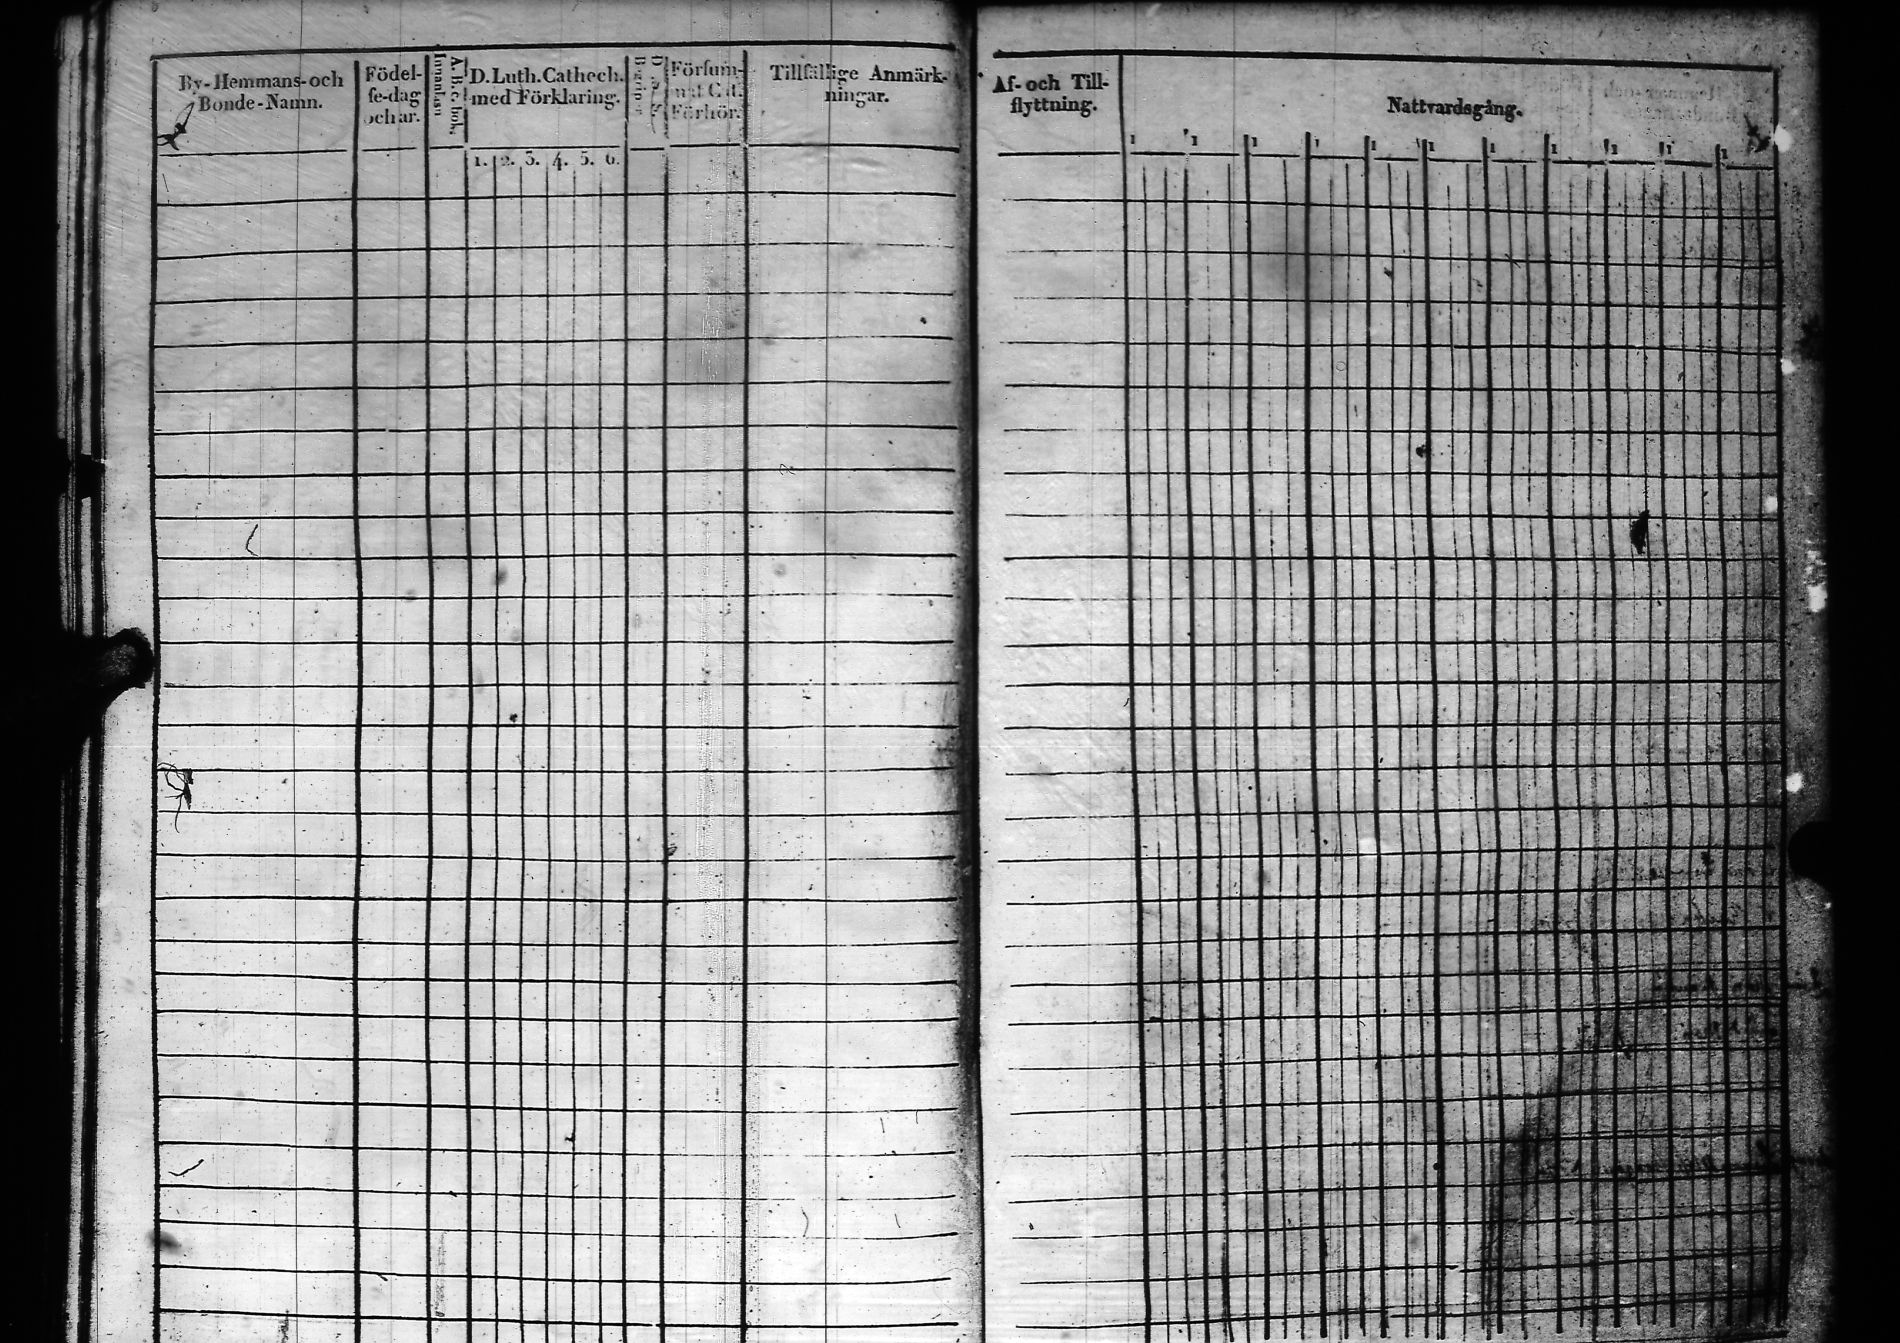 By-Hemmans-och
Bonde-Namn.
Födel-
se-dag
och år.
A.B.c.bok.
Innanläsn
D.Luth.Cathech.
med Förklaring.
1. 2. 3. 4. 5. 6.
Försum-
Förhör.
Tillfällige Anmärk-
ningar.
Af- och Till-
flyttning.
Nattvardsgång.
1 1 1 1 1 1 1 1 1 1 1